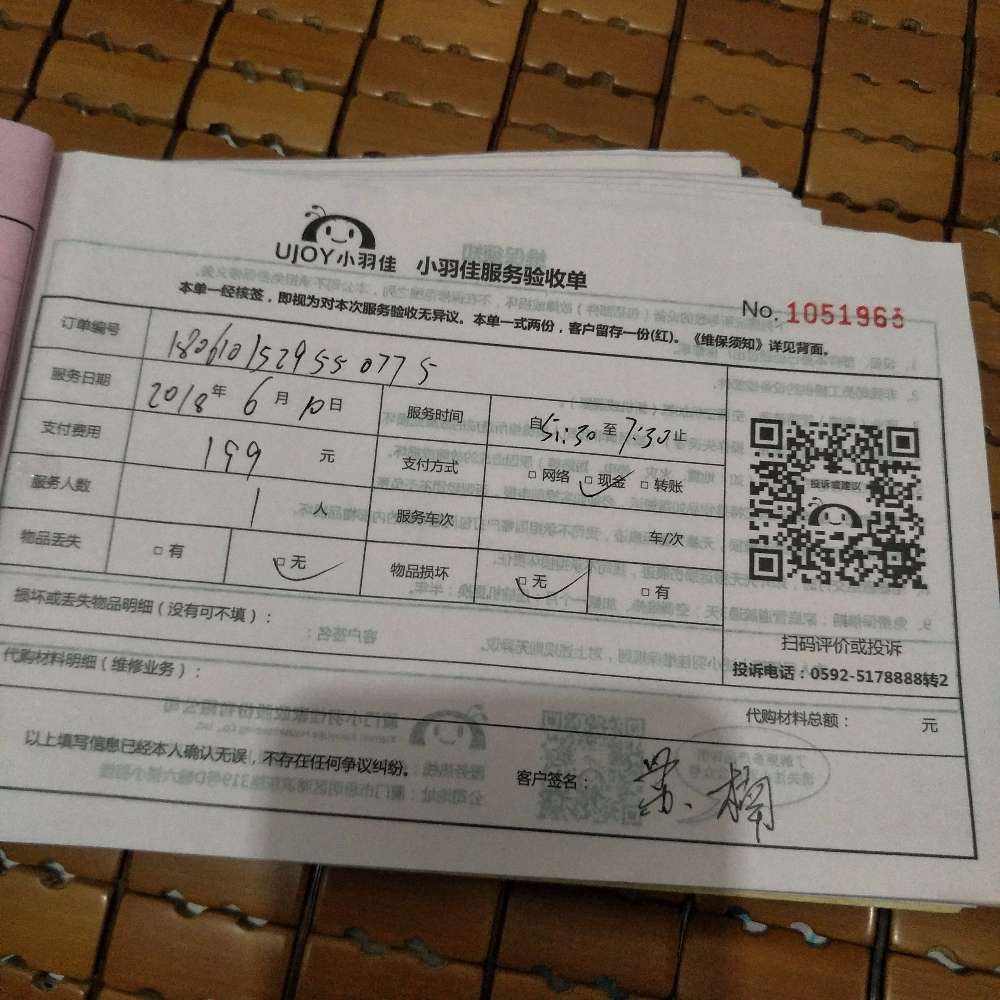 UJOY小羽佳 小羽佳服务验收单
No. 1051963
本单一经核签，即视为对本次服务验收无异议。本单一式两份，客户留存一份(红)。《维保须知》详见背面。
订单编号 180610152955 0775
服务日期 2018年 6月 10日 服务时间 自5:30至7:30止
支付费用 199 元 支付方式 □网络 □现金 □转账
服务人数 1 人 服务车次 车/次
物品丢失 □有 □无 物品损坏 □无 □有
投诉或建议
扫码评价或投诉
投诉电话：0592-5178888转2
损坏或丢失物品明细（没有可不填）：
代购材料明细（维修业务）：
代购材料总额： 元
以上填写信息已经本人确认无误，不存在任何争议纠纷。
客户签名：